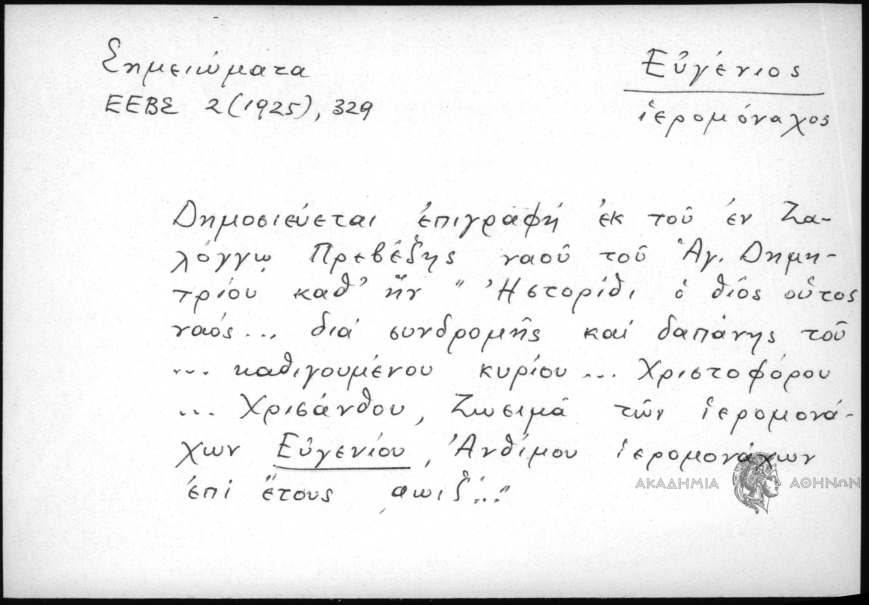 Σημειώματα
ΕΕΒΣ 2(1925), 329
Εὐγένιος
ἱερομόναχος
Δημοσιεύεται ἐπιγραφή ἐκ τοῦ ἐν Ζα-
λόγγῳ Πρεβέζης ναοῦ τοῦ Ἁγ. Δημη-
τρίου καθ' ἥν " Ἡστορίθι ὁ θῖος οὗτος
ναός... διά συνδρομῆς καί δαπάνης τοῦ
... καθιγουμένου κυρίου ... Χριστοφόρου
... Χρισάνθου, Ζωσιμᾶ τῶν ἱερομονά-
χων Εὐγενίου, Ἀνθίμου ἱερομονάχων
ἐπί ἔτους ͵αωιζ..."
ΑΚΑΔΗΜΙΑ ΑΘΗΝΩΝ